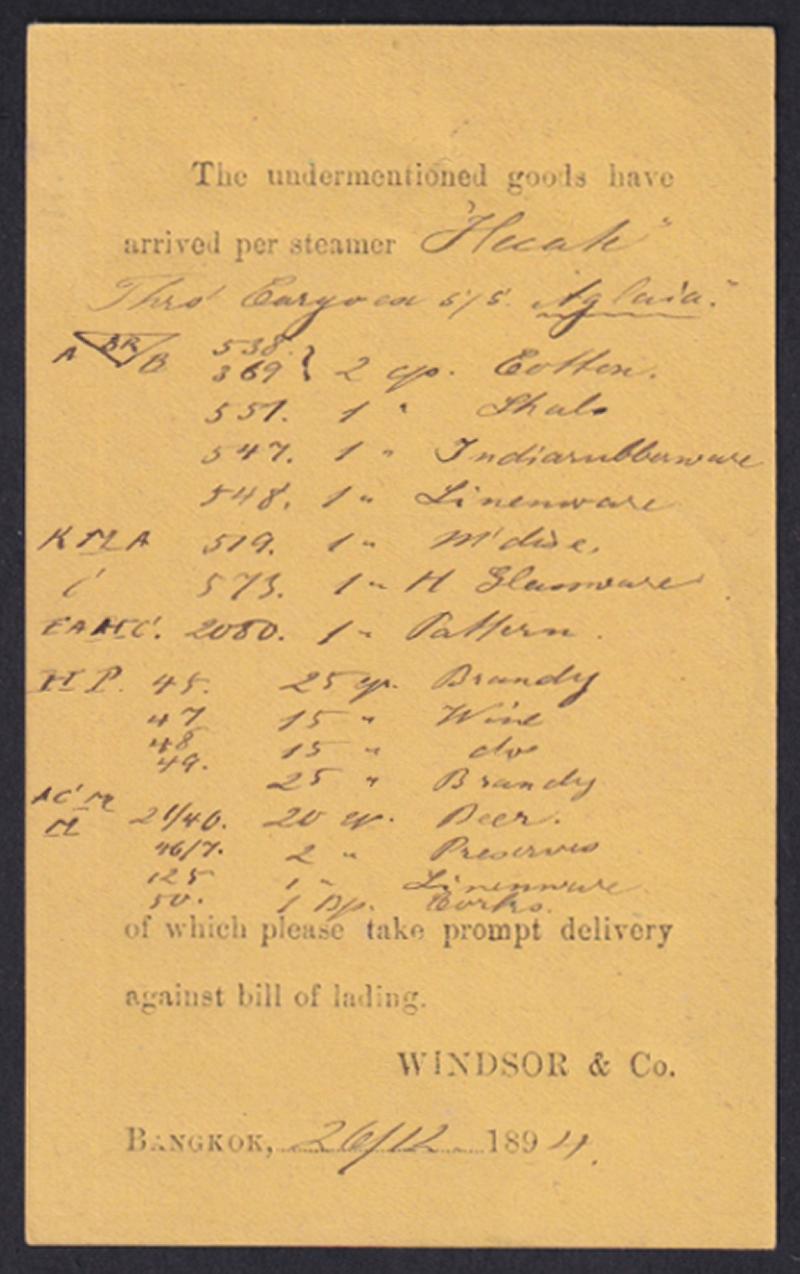 The undermentioned goods have
arrived per steamer "Hecate"
Thro' Cargo ex s/s. Aglaia."
A BR B 538.
369 } 2 cp. Cotton.
551. 1 " Shals
547. 1 " Indiarubberware
548. 1 " Linenware
K M A 519. 1 " M'dise.
573. 1 " H Glassware
2080. 1 " Pattern.
H P. 45. 25 cp. Brandy
47 15 " Wine
48 15 " do
49. 25 " Brandy
A C M
M 21/40. 20 cp. Beer.
46/7. 2 " Preserves
125 1 " Linenware
50. 1 Corks.
of which please take prompt delivery
against bill of lading.
WINDSOR & Co.
BANGKOK, 26/12 1894.